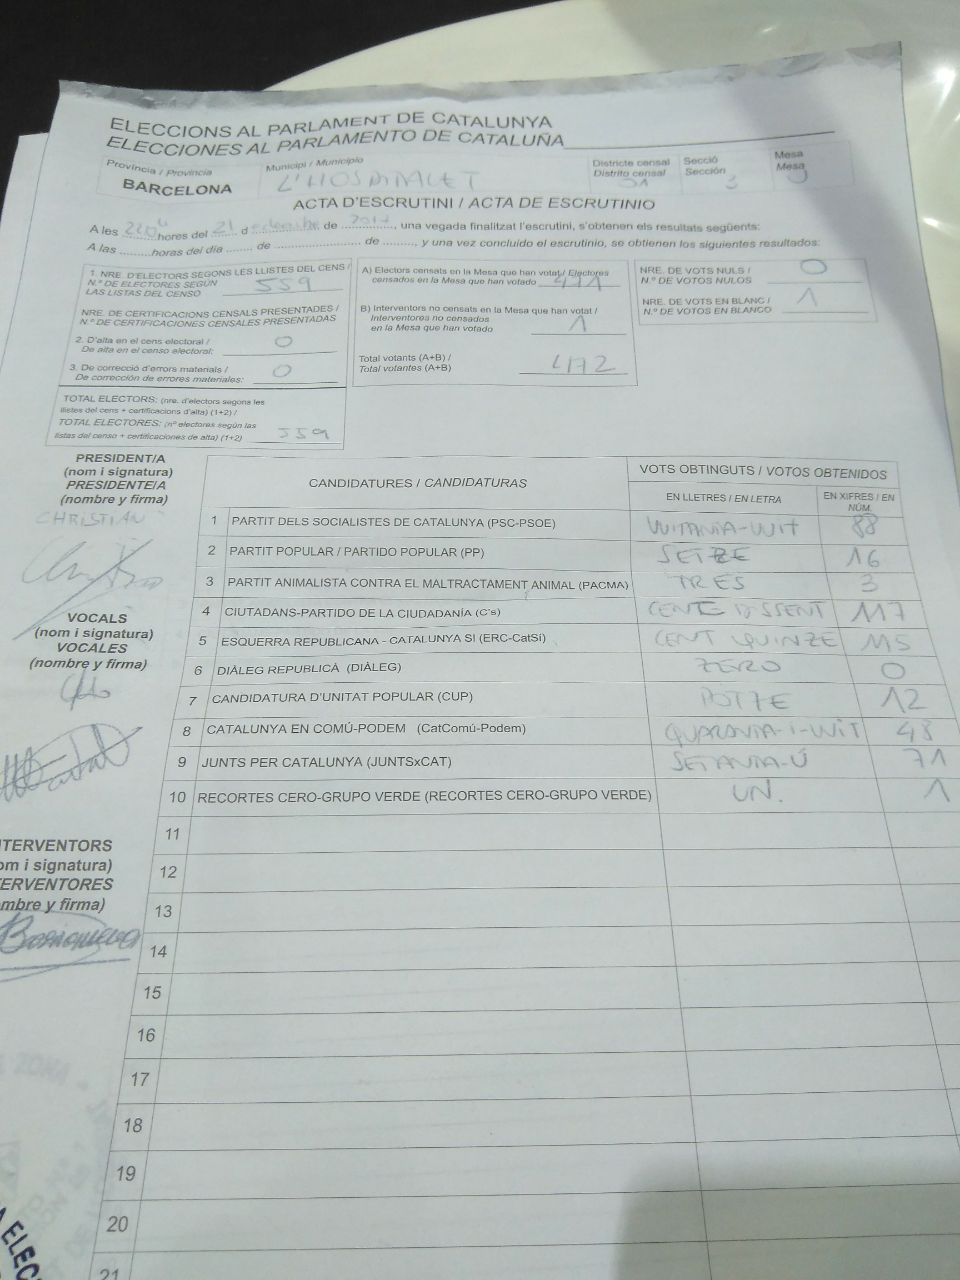 ELECCIONS AL PARLAMENT DE CATALUNYA
ELECCIONES AL PARLAMENTO DE CATALUÑA
Provincia / Provincia
BARCELONA
Municipi / Municipio
L'HOSPITALET
Districte censal
Distrito censal
Secció
Sección
3
Mesa
Mesa
U
ACTA D'ESCRUTINI / ACTA DE ESCRUTINIO
A les hores del 21 d de 2017, una vegada finalitzat l'escrutini, s'obtenen els resultats següents:
A las ........horas del día ....... de ....................... de ........, y una vez concluído el escrutinio, se obtienen los siguientes resultados:
1. NRE. D'ELECTORS SEGONS LES LLISTES DEL CENS /
N.º DE ELECTORES SEGÚN
LAS LISTAS DEL CENSO 559
NRE. DE CERTIFICACIONS CENSALS PRESENTADES /
N.º DE CERTIFICACIONES CENSALES PRESENTADAS
2. D'alta en el cens electoral /
De alta en el censo electoral: 0
3. De correcció d'errors materials /
De corrección de errores materiales: 0
TOTAL ELECTORS: (nre. d'electors segons les
llistes del cens + certificacions d'alta) (1+2) /
TOTAL ELECTORES: (nº electores según las
listas del censo + certificaciones de alta) (1+2) 559
A) Electors censats en la Mesa que han votat / Electores
censados en la Mesa que han votado 471
B) Interventors no censats en la Mesa que han votat /
Interventores no censados
en la Mesa que han votado 1
Total votants (A+B) /
Total votantes (A+B) 472
NRE. DE VOTS NULS /
N.º DE VOTOS NULOS 0
NRE. DE VOTS EN BLANC /
N.º DE VOTOS EN BLANCO 1
PRESIDENT/A
(nom i signatura)
PRESIDENTE/A
(nombre y firma)
CHRISTIAN
VOCALS
(nom i signatura)
VOCALES
(nombre y firma)
TERVENTORS
om i signatura)
ERVENTORES
mbre y firma)
CANDIDATURES / CANDIDATURAS
VOTS OBTINGUTS / VOTOS OBTENIDOS
EN LLETRES / EN LETRA
EN XIFRES / EN NÚM.
1 PARTIT DELS SOCIALISTES DE CATALUNYA (PSC-PSOE) VUITANTA-VUIT 88
2 PARTIT POPULAR / PARTIDO POPULAR (PP) SETZE 16
3 PARTIT ANIMALISTA CONTRA EL MALTRACTAMENT ANIMAL (PACMA) TRES 3
4 CIUTADANS-PARTIDO DE LA CIUDADANÍA (C's) 117
5 ESQUERRA REPUBLICANA - CATALUNYA SÍ (ERC-CatSí) CENT QUINZE 115
6 DIÀLEG REPUBLICÀ (DIÀLEG) ZERO 0
7 CANDIDATURA D'UNITAT POPULAR (CUP) DOTZE 12
8 CATALUNYA EN COMÚ-PODEM (CatComú-Podem) QUARANTA-I-VUIT 48
9 JUNTS PER CATALUNYA (JUNTSxCAT) SETANTA-Ú 71
10 RECORTES CERO-GRUPO VERDE (RECORTES CERO-GRUPO VERDE) UN. 1
11
12
13
14
15
16
17
18
19
20
21